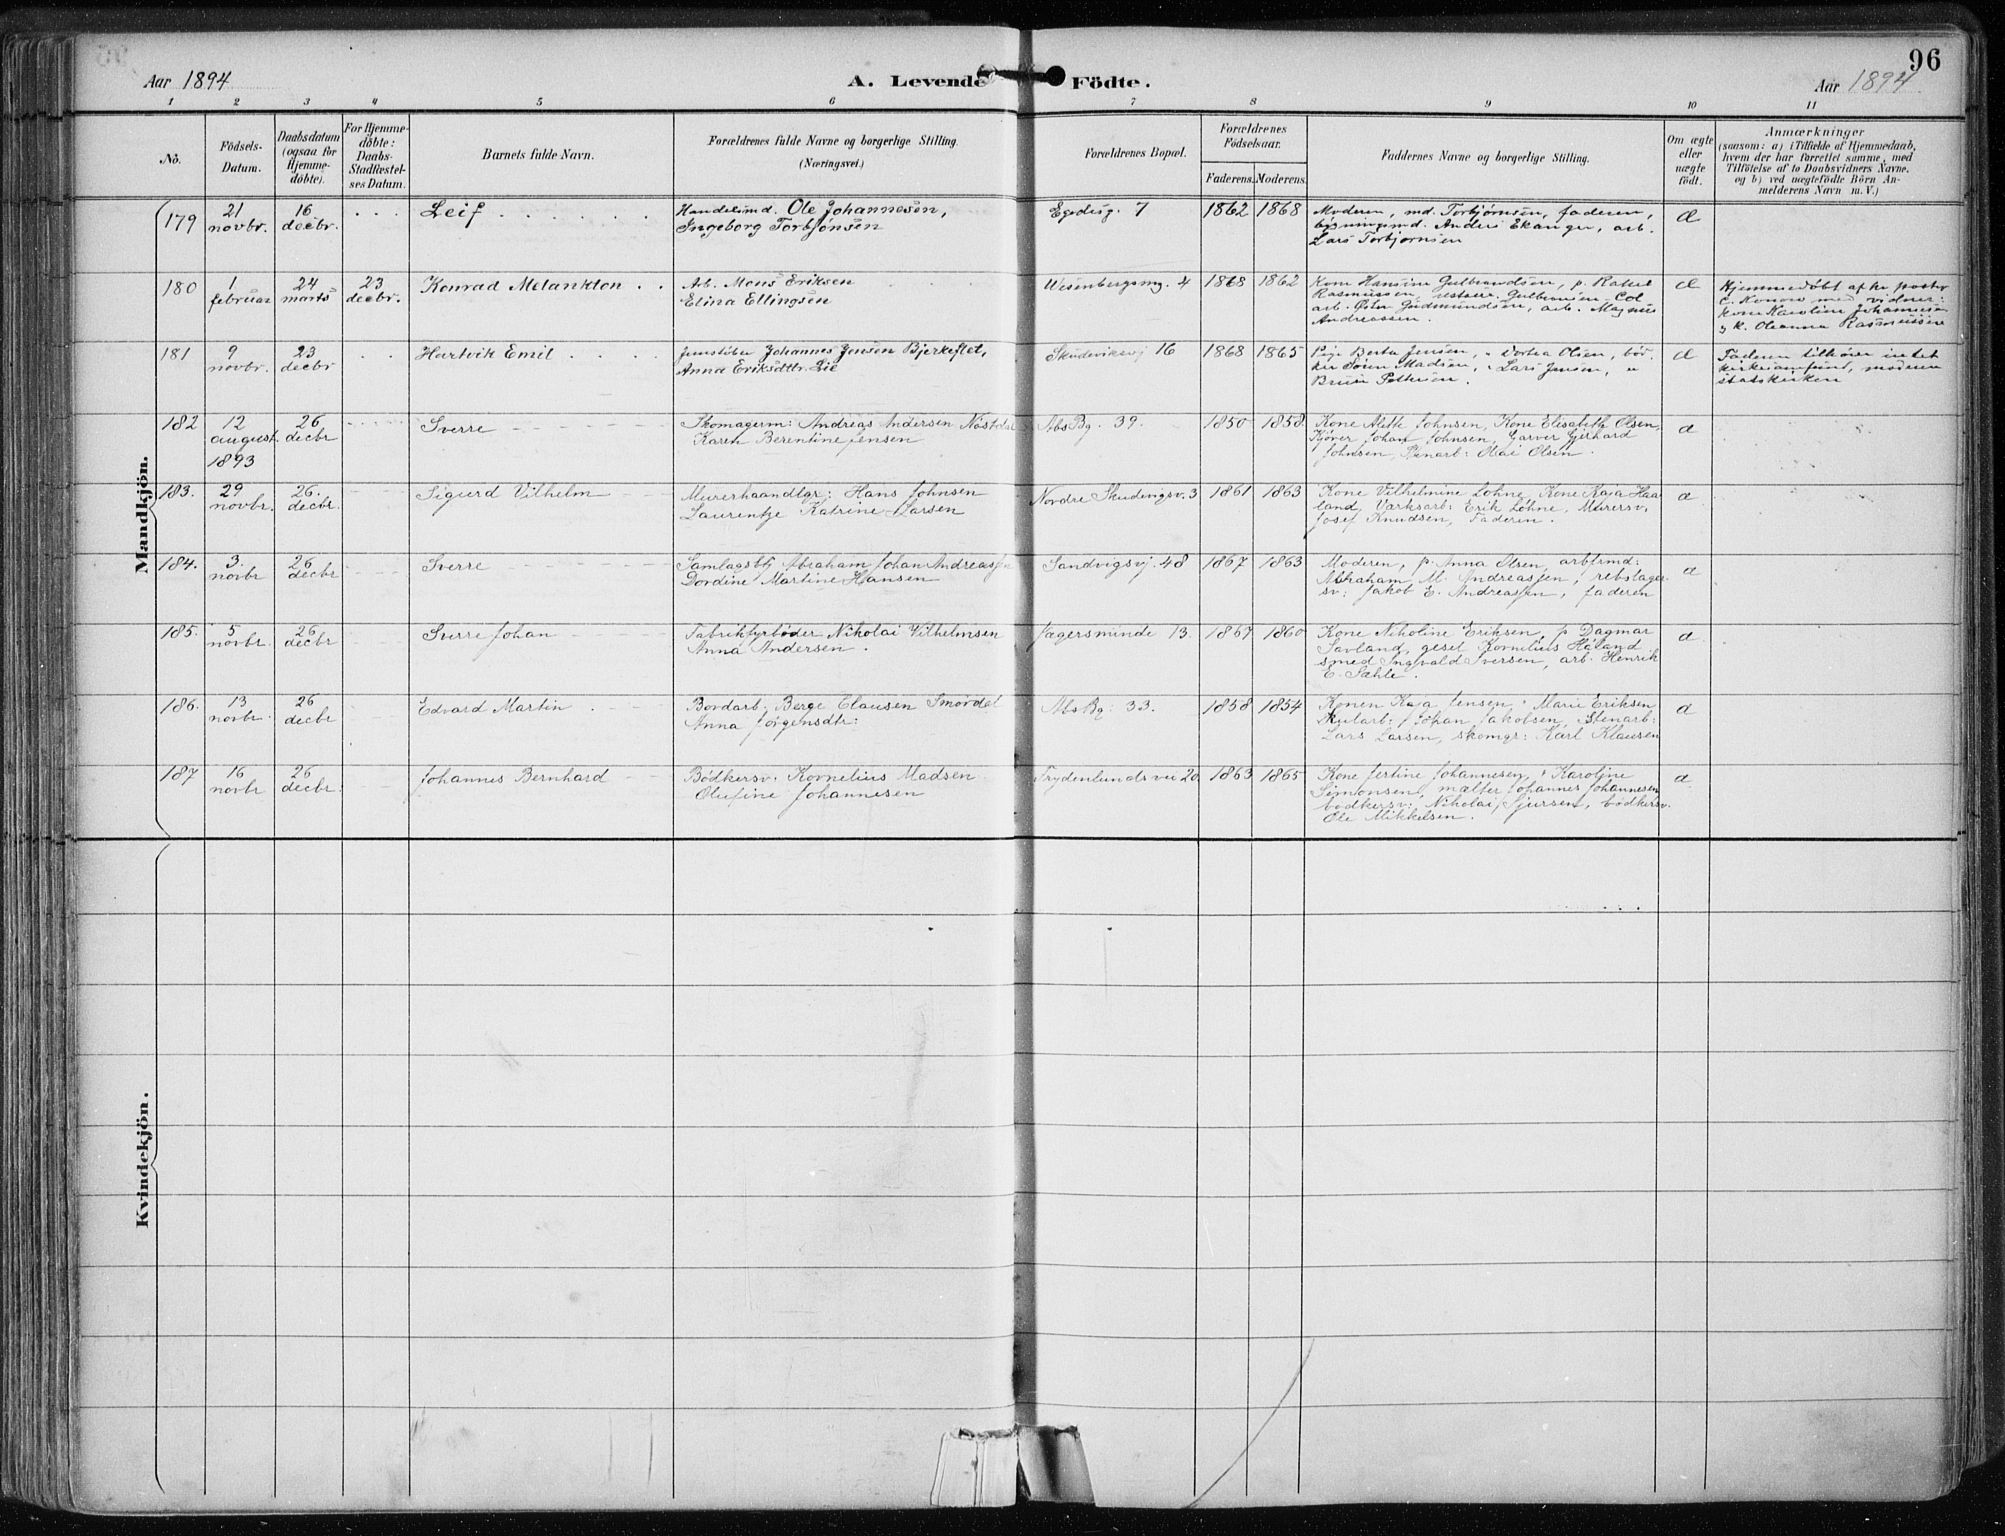 96
Aar 1894
A. Levende Födte.
Aar 1894
1 2 3 4 5 6 7 8 9 10 11
No.
Födsels-
Datum.
Daabsdatum
(ogsaa for
Hjemme-
döbte).
For Hjemme-
döbte:
Daabs-
Stadfæstel-
ses Datum.
Barnets fulde Navn.
Forældrenes fulde Navne og borgerlige Stilling.
(Næringsvei.)
Forældrenes Bopæl.
Forældrenes
Födselsaar.
Faderens. Moderens.
Faddernes Navne og borgerlige Stilling.
Om ægte
eller
uægte
födt.
Anmærkninger
(saasom: a) i Tilfælde af Hjemmedaab,
hvem der har forrettet samme, med
Tilföielse af to Daabsvidners Navne.
og b) ved uægtefödte Börn An-
melderens Navn m. V.)
Mandkjön.
179
21
novbr.
16
decbr.
Leif
Handelsmd. Ole Johannesen,
Ingeborg Torbjönsen
Egedesg. 7
1862 1868
Moderen, md. Torbjørnsen, faderen,
bygningsmd. Anders Ekanger, arb.
Lars Torbjørnsen
æ
180
1
februar
24
marts
23
decbr.
Konrad Melankton
Arb. Mons Eriksen
Elina Ellingsen
Wesenbergsmg. 4
1868 1862
Kone Hansine Gulbrandsen, p. Rakel
Rasmussen, Gulbransen. Col
arb. Gudmundsen, arb. Magnus
Andreassen.
æ
Hjemmedøbt af hr pastor
C. Konow med vidner:
kone Karoline Johannesen
& k. Oleanna Rasmussen
181
9
novbr.
23
decbr
Hartvik Emil
Johannes Jensen Bjerkeflet,
Anna Eriksdttr. Lie
Skudeviksvj 16
1868 1865
Pige Berta Jensen, " Dortea Olsen, bød.
ker Sören Madsen, " Lars Jensen, "
Pettersen.
æ
Faderen tilhører intet
kirkesamfund, moderen
statskirken
182
12
august
1893
26
decbr
Sverre
Skomagerm: Andreas Andersen Nöstdal
Karen Berentine Jensen
AbsBg. 39.
1850 1858
Kone Alette Johnsen, Kone Elisabeth Olsen,
Johan Johnsen, Garver Gjerhard
Johnsen, Stenarb: Olai Olsen.
æ
183.
29
novbr.
26.
decbr.
Sigurd Vilhelm
Murerhaandlgr: Hans Johnsen
Laurentze Katrine Larsen
Nordre Skudevigsv. 3
1861 1863
Kone Vilhelmine Lohne, Kone Kaja Haa
land, Værksarb: Erik Löhne, Murersv,
Josef Knudsen, Faderen.
æ
184.
3.
novbr
26
decbr
Sverre
Samlagsbtj Abraham Johan Andreasjen
Dordine Martine Hansen
Sandvigsvj. 48
1867 1863
Moderen, p. Anna Olsen, arbfrmd:
Abraham M. Andreasjen, rebslager
sv: Jakob E. Andreasjen, faderen
æ
185.
5
novbr.
26
decbr
Sverre Johan
Fabrikfyrböder Nikolai Vilhelmsen
Anna Andersen.
Jægersminde 13.
1867 1860
Kone Nikoline Eriksen, p Dagmar
Savland, gesel Kornelius Håland
smed Ingvald Iversen, arb. Henrik
E. Sæhle.
æ
186.
13
novbr.
26
decbr
Edvard Martin
Bordarb. Berge Clausen Smördal
Anna Jörgensdtr:
AbsBg: 33.
1858 1854
Konen Kaja Jensen, " Marie Eriksen
Skutarb: Johan Jakobsen, Stenarb:
Lars Larsen, skomgr: Karl Klausen
æ
187
16
novbr
26
decbr.
Johannes Bernhard
Bödkersv. Kornelius Madsen
Olufine Johannesen
Frydenlundsvei 20
1863 1865
Kone Jertine Johannesen, " Karoline
Simonsen, mælter Johannes Johannesen
bödkersv: Nikolai Sjursen, bödkersv.
Ole Mikkelsen.
æ
Kvindekjön.